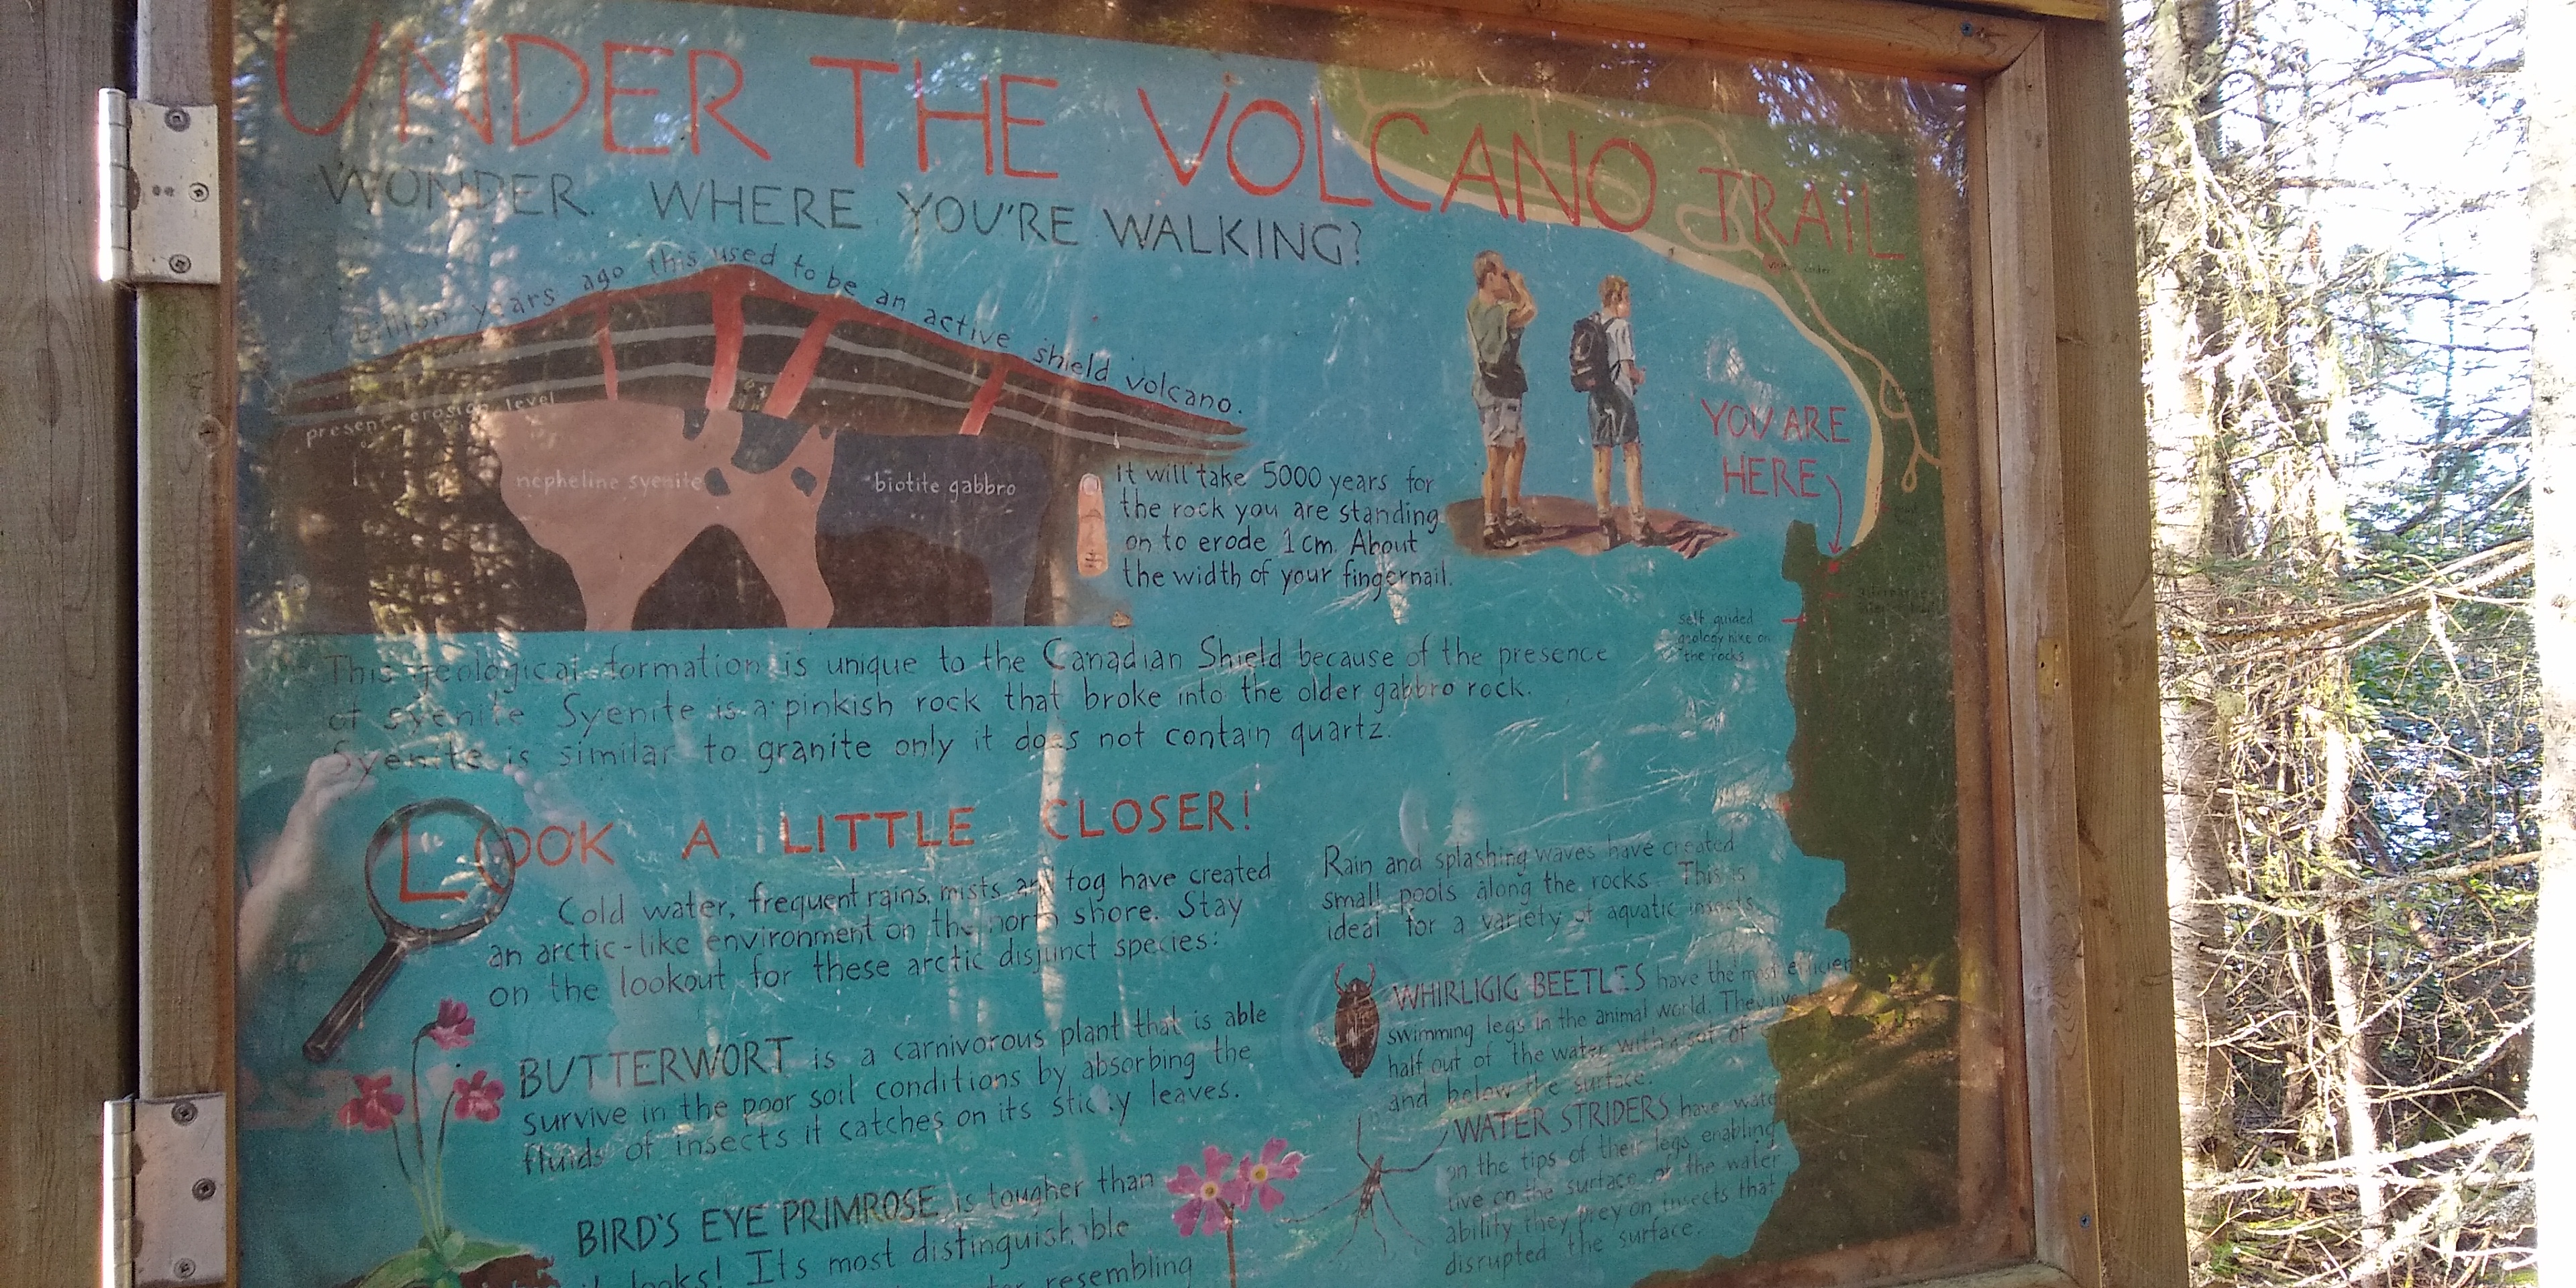 UNDER THE VOLCANO TRAIL
WONDER WHERE YOU'RE WALKING?
1 billion years ago this used to be an active shield volcano.
present erosion level
nepheline syenite
biotite gabbro
It will take 5000 years for
the rock you are standing
on to erode 1 cm. About
the width of your fingernail.
YOU ARE
HERE
self guided
geology hike on
the rocks
This geological formation is unique to the Canadian Shield because of the presence
of syenite Syenite is a pinkish rock that broke into the older gabbro rock.
Syenite is similar to granite only it does not contain quartz.
LOOK A LITTLE CLOSER!
Cold water, frequent rains, mists and fog have created
an arctic-like environment on the north shore. Stay
on the lookout for these arctic disjunct species:
BUTTERWORT is a carnivorous plant that is able
survive in the poor soil conditions by absorbing the
fluids of insects it catches on its sticky leaves.
BIRD'S EYE PRIMROSE is tougher than
it looks! Its most distinguishable
resembling
Rain and splashing waves have created
small pools along the rocks. This is
ideal for a variety of aquatic insects.
WHIRLIGIG BEETLES have the most efficient
swimming legs in the animal world. They live
half out of the water with a set of
and below the surface.
WATER STRIDERS have
on the tips of their legs enabling
live on the surface of the water
ability they prey on insects that
disrupted the surface.